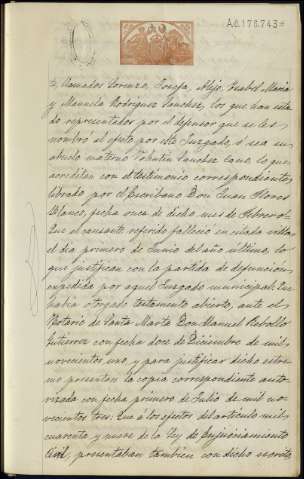 A.0.176.743*
te llamados Lorenzo, Josefa, Alejo, Ysabel Maria
y Manuela Rodriguez Sanchez, los que han esta
do representados por el defensor que se les
nombró al efecto por este Juzgado, ó sea su
abuelo materno Sanchez Cano, lo que
acreditan con el testimonio correspondiente,
librado por el Escribano Don Juan Flores
Blanco, fecha once de dicho mes de Febrero=
Que el causante referido falleció en citada villa
el dia primero de Junio del año último, lo
que justifican con la partida de defuncion
expedida por aquel Juzgado municipal. Que
habia otorgado testamento abierto, ante el
Notario de Santa Marta Don Manuel Rebollo
Gutierrez con fecha doce de Diciembre de mil
novecientos uno y para justificar dicho estre-
mo presentan la copia correspondiente auto-
rizada con fecha primero de Julio de mil no-
vecientos tres. Que a los efectos del artículo mil
cuarenta y nueve de la Ley de Enjuiciamiento
Civil, presentaban tambien con dicho escrito